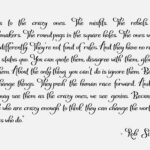 to the crazy ones. The misfits. The rebels
makers. The round pegs in the square holes. The ones
differently. They're not fond of rules. And they have no
quo. You can quote them, disagree with them,
them. About the only thing you can't do is ignore them.
things. They push the human race forward. And
may see them as the crazy ones, we see genius.
who are crazy enough to think they can change the
who do."
- Rob